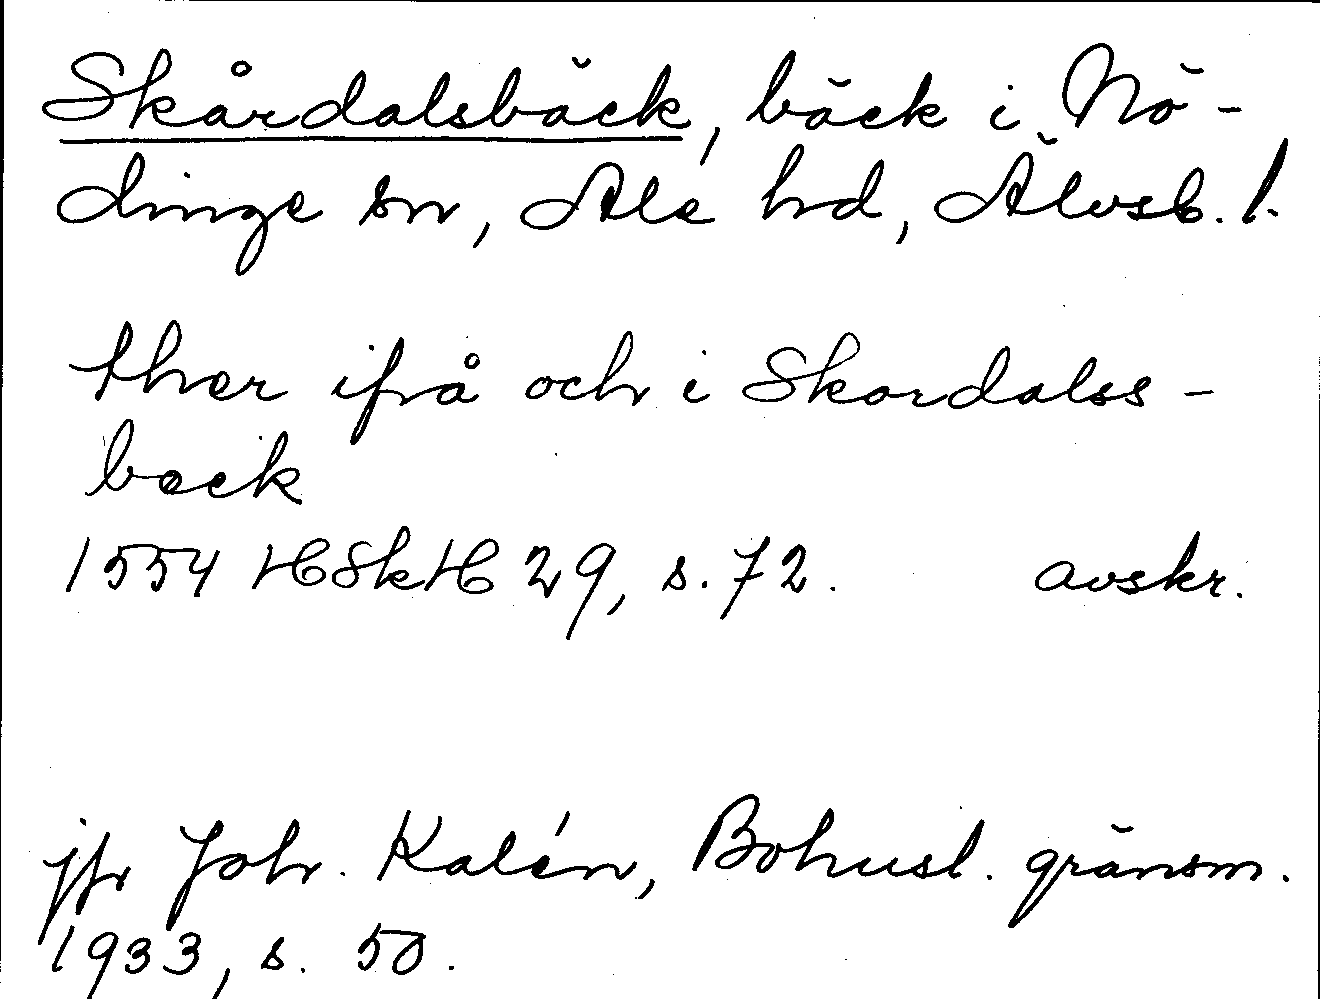 Skårdalsbäck, bäck i Nö-
dinge sn, Ale hd, Älvsb. l.
ther ifrå och i Skordalss-
beck
1554 HSkH 29, s. 72. avskr.
jfr Joh. Kalén, Bohusl. gränsm.
1933, s. 50.